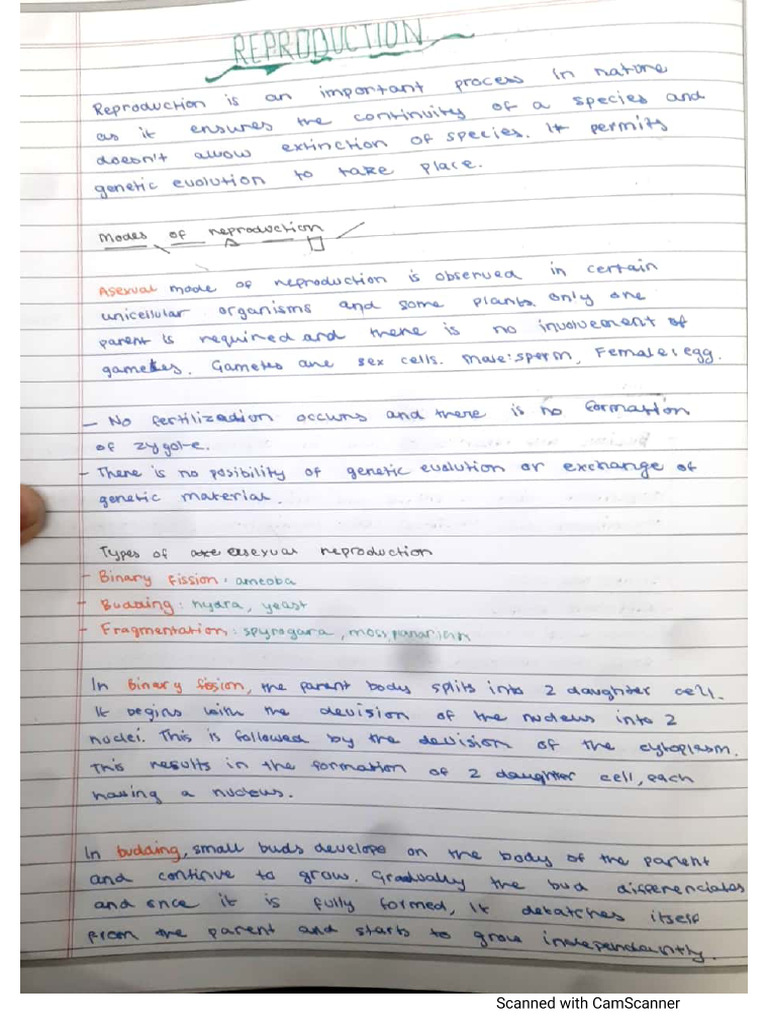 REPRODUCTION
Reproduction is an important process in nature
as it ensures the continuity of a species and
doesn't allow extinction of species. It permits
genetic evolution to take place.
Modes of reproduction
Asexual mode of reproduction is observed in certain
unicellular organisms and some plants. only one
parent is required and there is no involvement of
gametes. Gametes are sex cells. Male: sperm, Female: egg.
- No fertilization occurs and there is no formation
of zygote.
- There is no posibility of genetic evolution or exchange of
genetic material.
Types of asexual reproduction
- Binary fission: amoeba
- Budding: hydra, yeast
- Fragmentation: spyrogara, moss, panarian
In Binary fission, the parent body splits into 2 daughter cell.
It begins with the devision of the nucleus into 2
nuclei. This is followed by the devision of the cytoplasm.
This results in the formation of 2 daughter cell, each
having a nucleus.
In budding, small buds develope on the body of the parent
and continue to grow. Gradually the bud differenciates
and once it is fully formed, it detatches itself
from the parent and starts to grow independantly.
Scanned with CamScanner